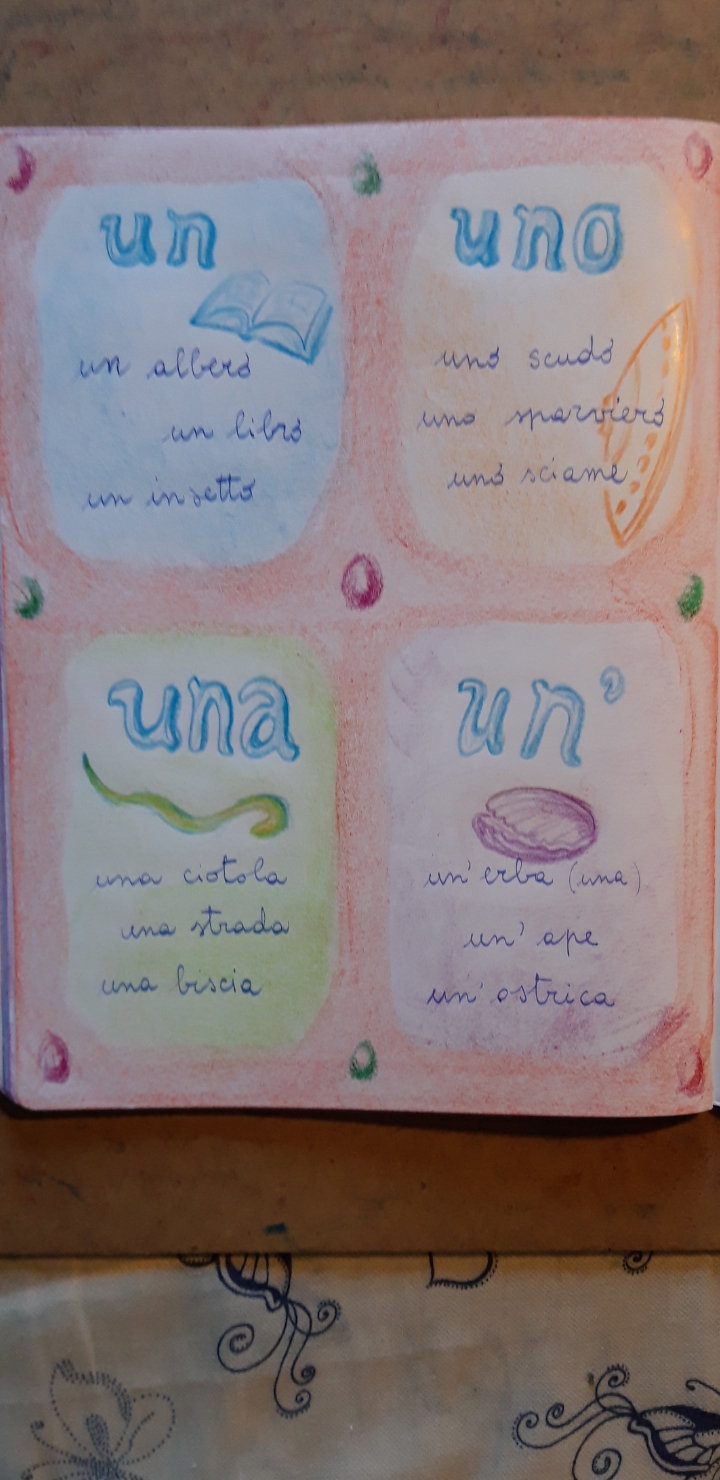 un
un albero
un libro
un insetto
uno
uno scudo
uno sparviero
uno sciame
una
una ciotola
una strada
una biscia
un'
un'erba (una)
un' ape
un' ostrica